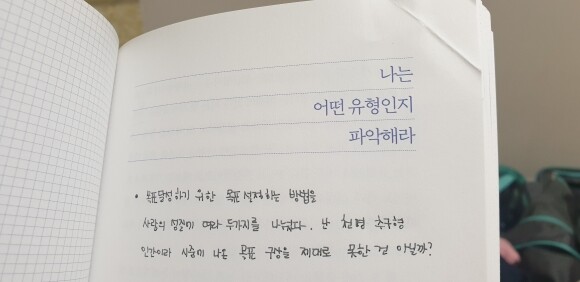 나는
어떤 유형인지
파악해라
• 목표달성하기 위한 목표 설정하는 방법을
사람의 성준에 따라 두가지를 나눴다. 난 쾌락 추구형
인간이라 사춘기 나은 목표 구상을 제대로 못한 걸 아닐까?